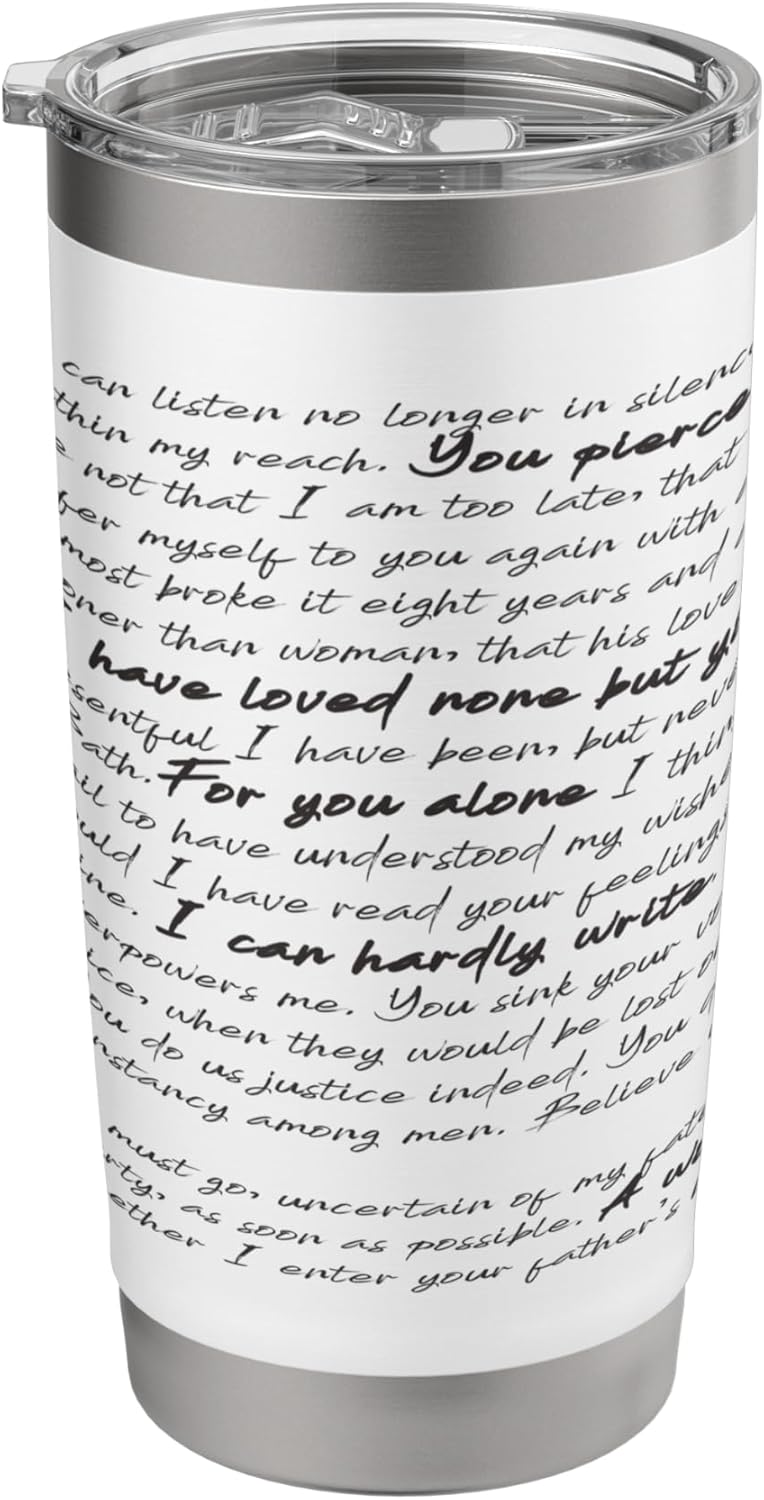 can listen no longer in silenc
thin my reach. You pierce
e not that I am too late, that
fer myself to you again with
most broke it eight years and
oner than woman, that his love
have loved none but y
sentful I have been, but neve
Bath. For you alone I thin
ail to have understood my wishe
ould I have read your feelings
ine. I can hardly write.
erpowers me. You sink your vo
ice, when they would be lost o
ou do us justice indeed. You
nstancy among men. Believe
must go, uncertain of my fate
rty, as soon as possible. A w
ether I enter your father's